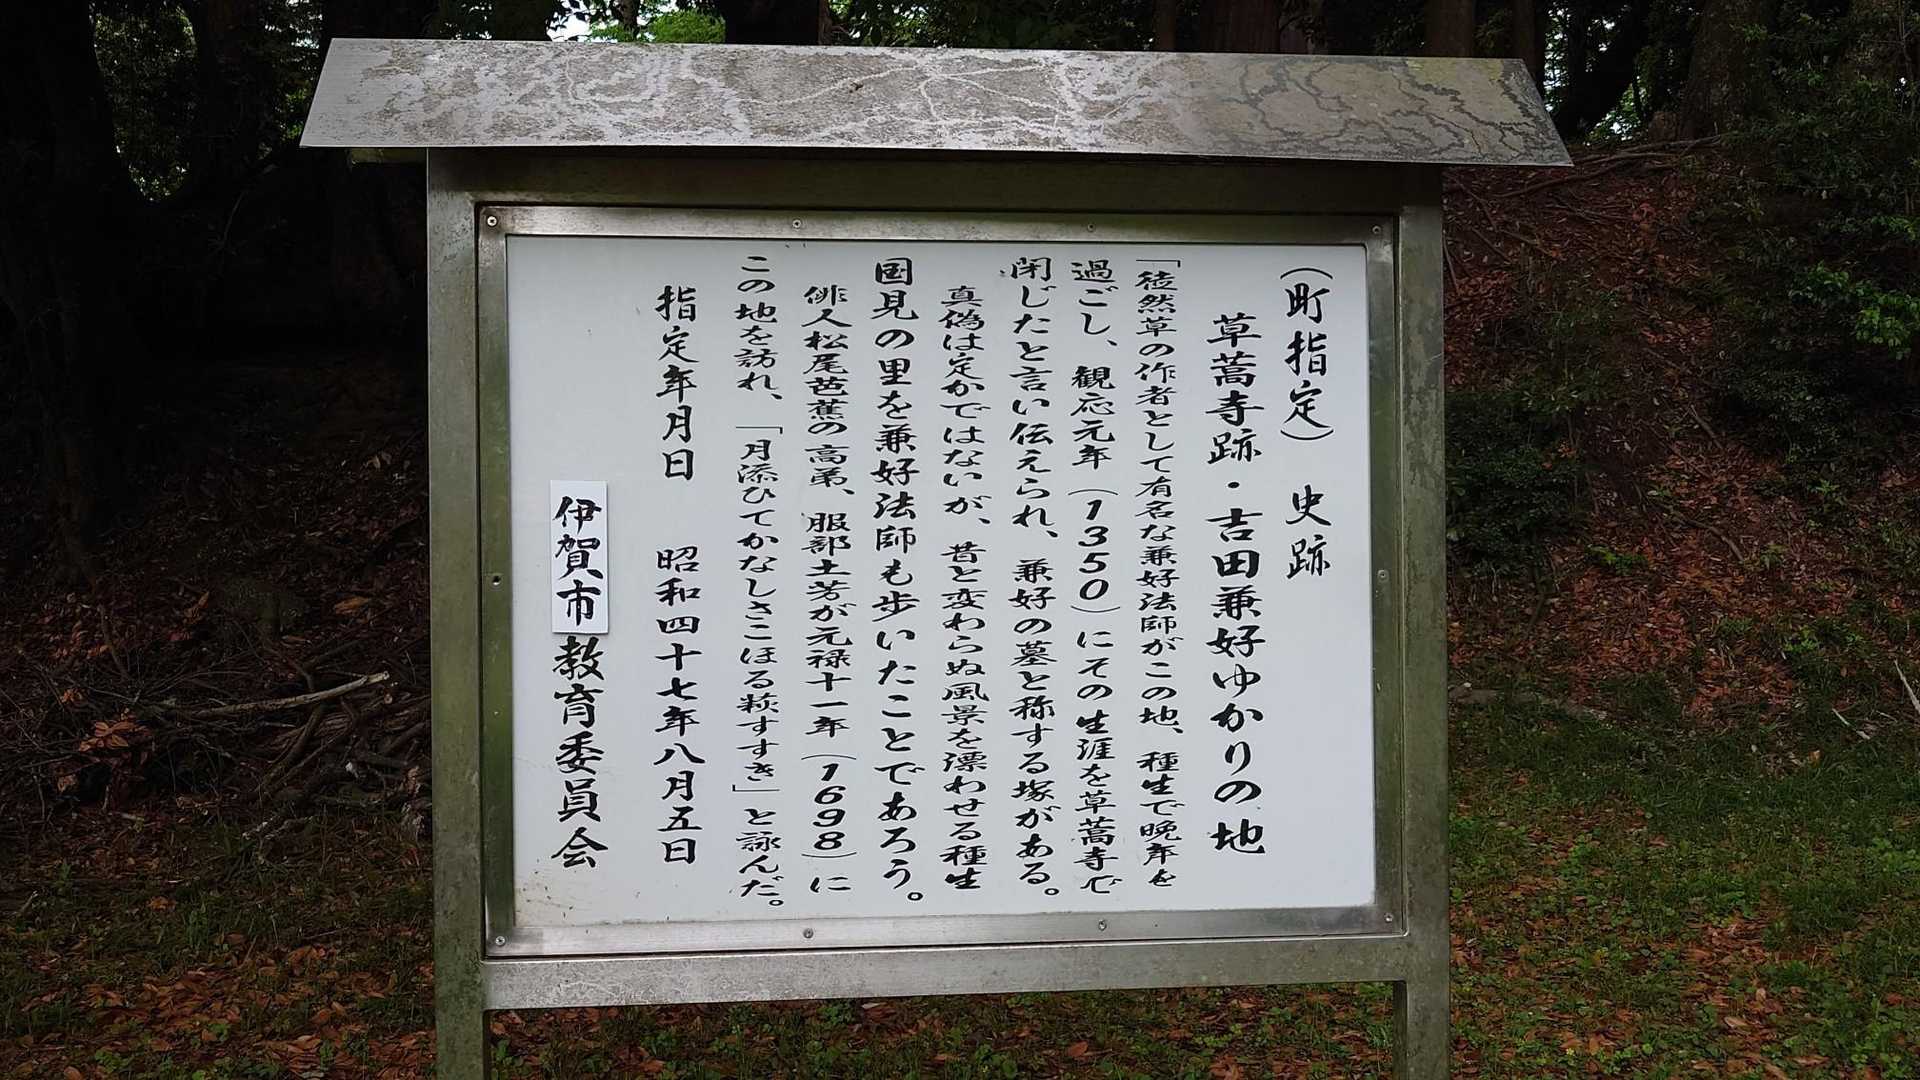 （町指定） 史跡
草蒿寺跡・吉田兼好ゆかりの地
「徒然草の作者として有名な兼好法師がこの地、種生で晩年を
過ごし、観応元年（1350）にその生涯を草蒿寺で
閉じたと言い伝えられ、兼好の墓と称する塚がある。
真偽は定かではないが、昔と変わらぬ風景を漂わせる種生
国見の里を兼好法師も歩いたことであろう。
俳人松尾芭蕉の高弟、服部土芳が元禄十一年（1698）に
この地を訪れ、「月添ひてかなしさこほる萩すすき」と詠んだ。
指定年月日 昭和四十七年八月五日
伊賀市教育委員会